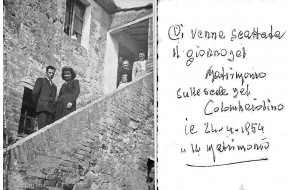 Ci venne scattata
il giorno del
Matrimonio
sulle scale del
Colombaiolino
il 24-4-1954
il Matrimonio